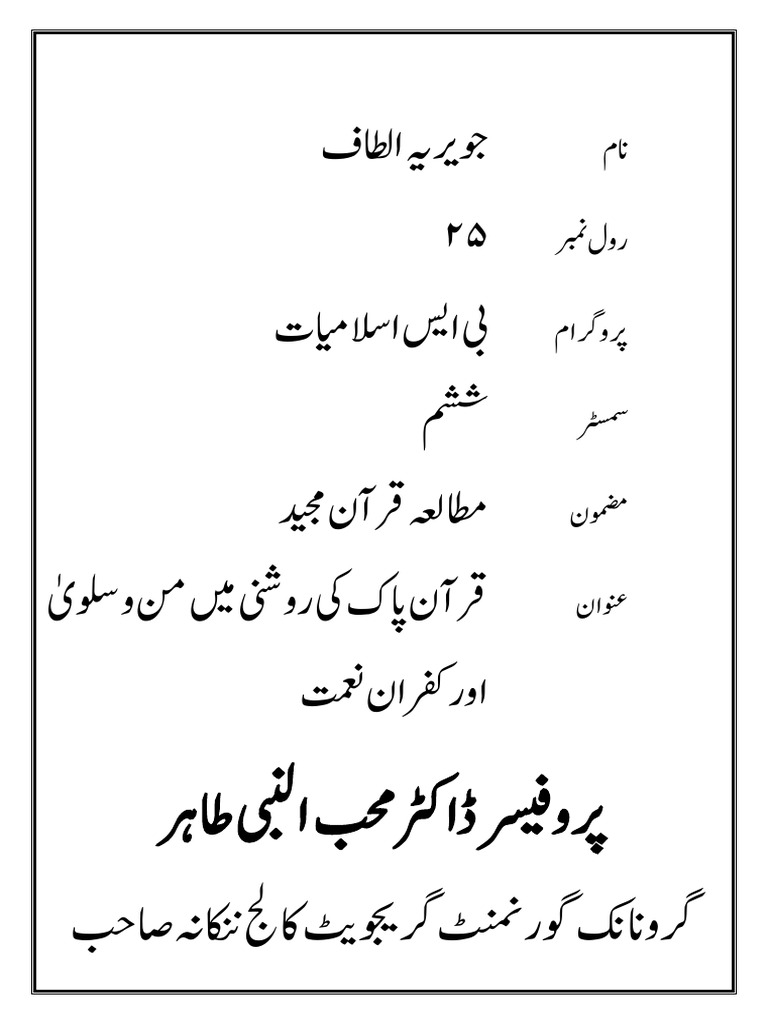 نام جویریہ الطاف
رول نمبر ۲۵
پروگرام بی ایس اسلامیات
سمسٹر ششم
مضمون مطالعہ قرآن مجید
عنوان قرآن پاک کی روشنی میں من و سلویٰ
اور کفران نعمت
پروفیسر ڈاکٹر محب النبی طاہر
گرونانک گورنمنٹ گریجویٹ کالج ننکانہ صاحب